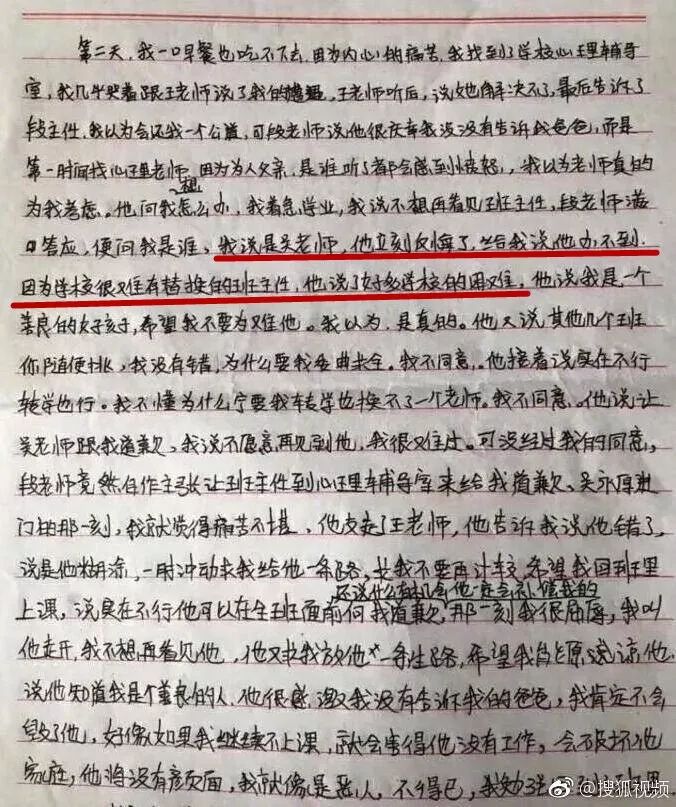 第二天,我一口早餐也吃不下去,因为内心的痛苦,我找到了学校心理辅导
室,我几乎哭着跟王老师说了我的遭遇,王老师听后,说她解决不了,最后告诉了
段主任,我以为会还我一个公道,可段老师说他很庆幸我没有告诉我爸爸,而是
第一时间找心理老师,因为为人父亲,是谁听了都会感到愤怒,我以为老师真的
为我考虑。他问我想怎么办,我着急学业,我说不想再看见班主任,段老师满
口答应,便问我是谁,我说是吴老师,他立刻反悔了,给我说他办不到.
因为学校很难有替换的班主任,他说了好多学校的困难,他说我是一个
善良的好孩子,希望我不要为难他。我以为,是真的。他又说其他几个班
你随便挑,我没有错,为什么要我委曲求全。我不同意,他接着说实在不行
转学也行。我不懂为什么宁要我转学也换不了一个老师。我不同意。他说让
吴老师跟我道歉,我说不愿意再见到他,我很难过。可没经过我的同意,
段老师竟然自作主张让班主任到心理辅导室来给我道歉、吴永厚进
门的那一刻,我就觉得痛苦不堪,他支走了王老师,他告诉我说他错了,
说是他糊涂,一时冲动求我给他一条路,女我不要再计较,希望我回到班里
还说什么有机会他一定会补偿我的
上课,说实在不行他可以在全班面前向我道歉,那一刻我很屈辱,我叫
他走开,我不想再看见他,他又求我放他一条生路,希望我自原谅他.
说他知道我是个善良的人,他很感激我没有告诉我的爸爸,我肯定不会
毁了他,好像如果我继续不上课,就会害得他没有工作,会破坏他
家庭,他将没有颜面,我就像是恶人,不得已,我
@搜狐视频